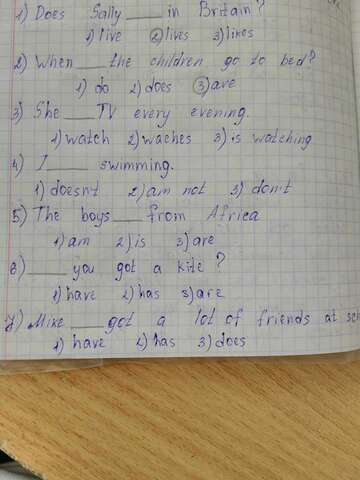 1) Does Sally ____ in Britain?
1) live 2) lives 3) likes
2) When ____ the children go to bed?
1) do 2) does 3) are
3) She ____ TV every evening.
1) watch 2) waches 3) is watching
4) I ____ swimming.
1) doesn't 2) am not 3) don't
5) The boys ____ from Africa
1) am 2) is 3) are
6) ____ you got a kite?
1) have 2) has 3) are
7) Mike ____ got a lot of friends at
1) have 2) has 3) does